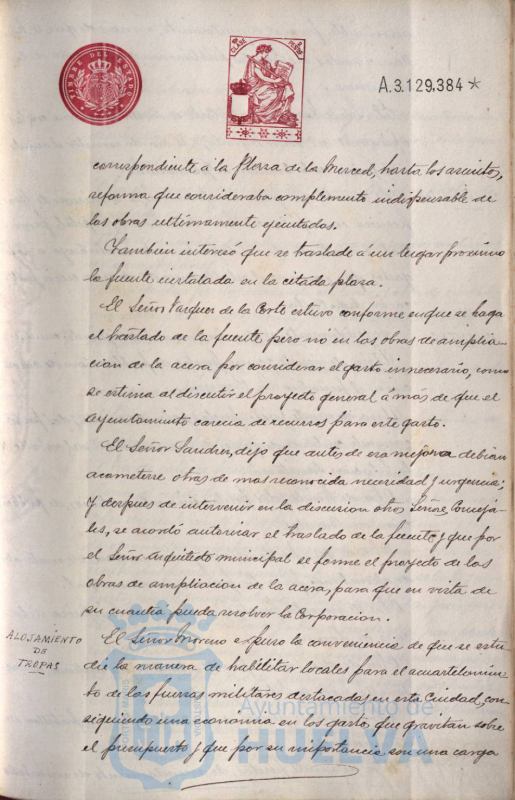 TIMBRE DEL ESTADO
CLASE
PESOS
A.3.129.384*
correspondiente á la Plaza de la Merced, hasta los asientos,
reforma que consideraba complemento indispensable de
las obras ultimamente ejecutadas.
Tambien interesó que se traslade á un lugar proximo
la fuente instalada en la citada plaza.
El Señor Vazquez de la Corte estuvo conforme en que se haga
el traslado de la fuente pero nó en las obras de amplia-
cion de la acera por considerar el gasto innecesario, como
se estima al discutir el proyecto general á más de que el
Ayuntamiento carecia de recursos para este gasto.
El Señor dijo que antes de esa mejora debian
acometerse obras de mas reconocida necesidad y urgencia;
Y despues de intervenir en la discusion otros Señores Conceja-
les, se acordó autorizar el traslado de la fuente y que por
el Señor Arquitecto municipal se forme el proyecto de las
obras de ampliacion de la acera, para que en vista de
su cuantia pueda resolver la Corporacion.
ALOJAMIENTO
DE
TROPAS
El Señor Moreno expuso la conveniencia de que se estu-
die la manera de habilitar locales para el acuartelamien-
to de las fuerzas militares destacadas en esta Ciudad, con-
siguiendo una economia en los gastos que gravitan sobre
el presupuesto y que por su importancia son una carga
Ayuntamiento de
HUELVA